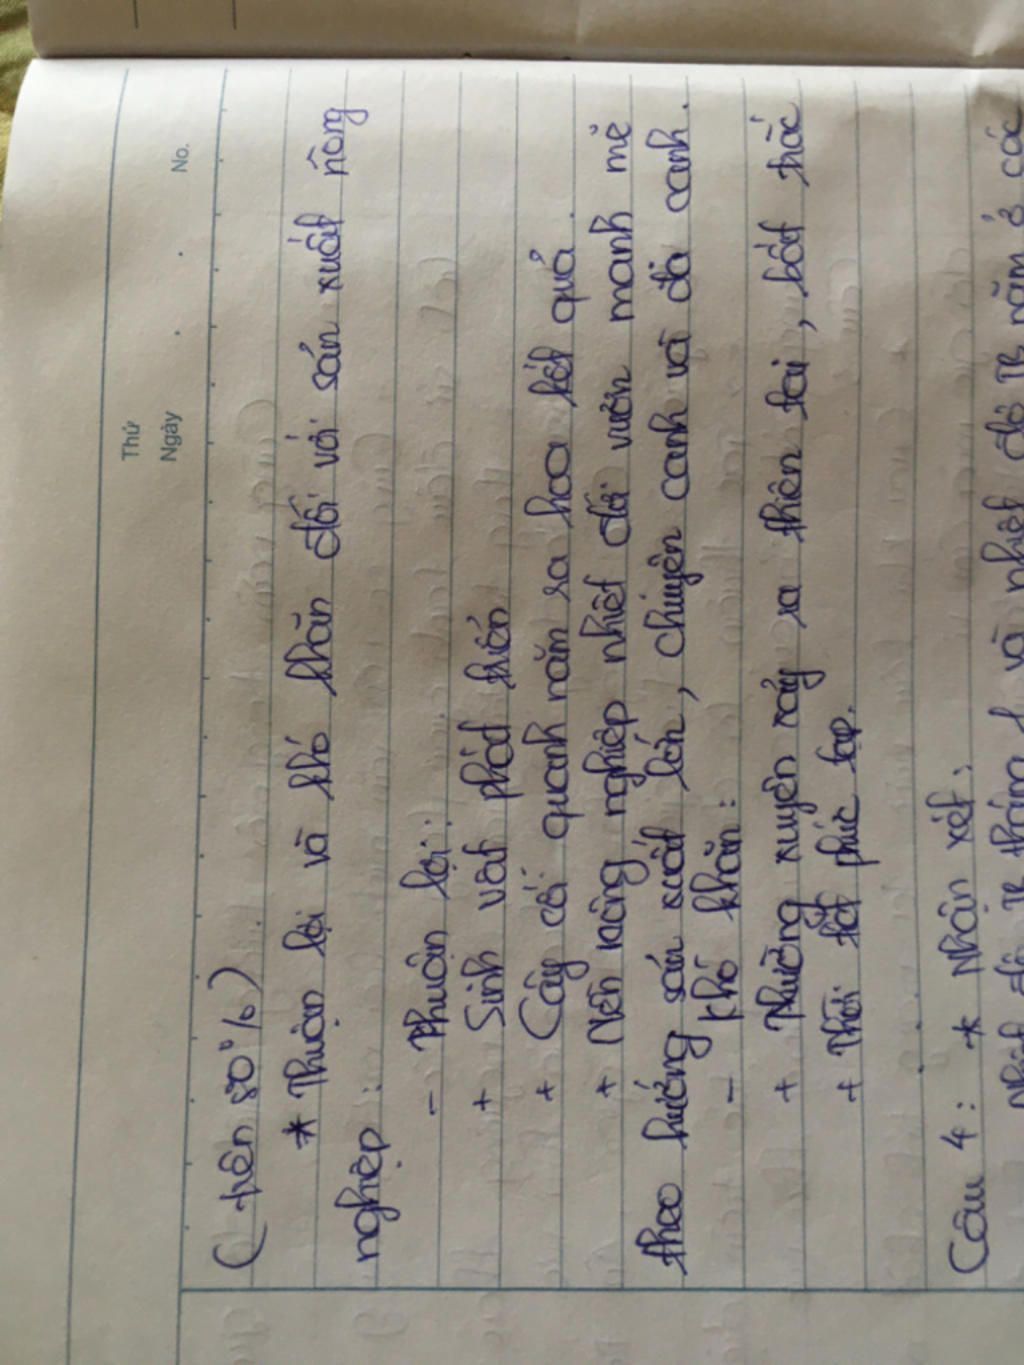 Thứ
Ngày . . No.
(trên 80%)
* Thuận lợi và khó khăn đối với sản xuất nông
nghiệp :
- Thuận lợi:
+ Sinh vật phát triển
+ Cây cối quanh năm ra hoa kết quả.
+ Nền nông nghiệp nhiệt đới vươn mạnh mẽ
theo hướng sản xuất lớn, chuyên canh và đa canh.
- Khó khăn :
+ Thường xuyên xảy ra thiên tai, bất trắc
+ Thời tiết phức tạp.
Câu 4 : * Nhận xét:
Nhiệt độ TB tháng 1 và nhiệt độ TB năm ở các